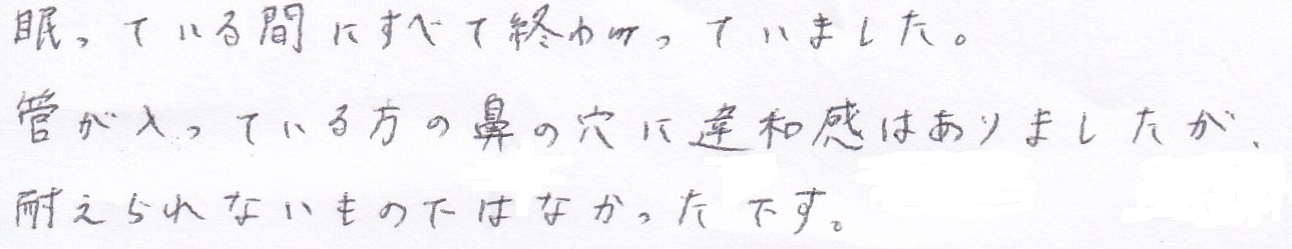 眠っている間にすべて終わっていました。
管が入っている方の鼻の穴に違和感はありましたが、
耐えられないものではなかったです。